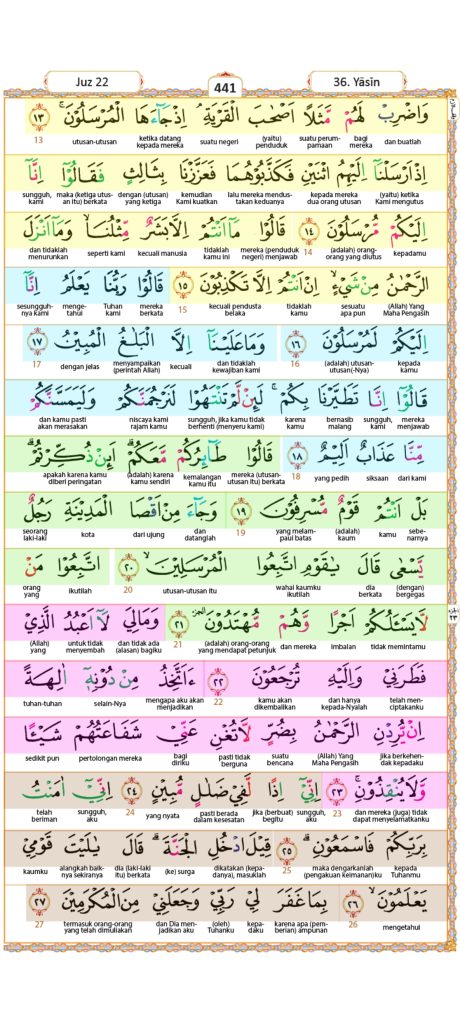 Juz 22
441
36. Yāsīn
وَاضْرِبْ لَهُمْ مَّثَلًا اَصْحٰبَ الْقَرْيَةِۘ اِذْ جَاۤءَهَا الْمُرْسَلُوْنَۚ ١٣
dan buatlah bagi mereka suatu perumpamaan (yaitu) penduduk suatu negeri ketika datang kepada mereka utusan-utusan 13
اِذْ اَرْسَلْنَآ اِلَيْهِمُ اثْنَيْنِ فَكَذَّبُوْهُمَا فَعَزَّزْنَا بِثَالِثٍ فَقَالُوْٓا اِنَّآ
(yaitu) ketika Kami mengutus kepada mereka dua orang utusan lalu mereka mendustakan keduanya kemudian Kami kuatkan dengan (utusan) yang ketiga maka (ketiga utusan itu) berkata sungguh, kami
اِلَيْكُمْ مُّرْسَلُوْنَ ١٤ قَالُوْا مَآ اَنْتُمْ اِلَّا بَشَرٌ مِّثْلُنَاۙ وَمَآ اَنْزَلَ
kepadamu (adalah) orang-orang yang diutus 14 mereka (penduduk negeri) menjawab tidaklah kamu ini kecuali manusia seperti kami dan tidaklah menurunkan
الرَّحْمٰنُ مِنْ شَيْءٍۙ اِنْ اَنْتُمْ اِلَّا تَكْذِبُوْنَ ١٥ قَالُوْا رَبُّنَا يَعْلَمُ اِنَّآ
(Allah) Yang Maha Pengasih sesuatu apa pun tidaklah kamu kecuali pendusta belaka 15 mereka berkata Tuhan kami mengetahui sesungguhnya kami
اِلَيْكُمْ لَمُرْسَلُوْنَ ١٦ وَمَا عَلَيْنَآ اِلَّا الْبَلٰغُ الْمُبِيْنُ ١٧
kepada kamu (adalah) utusan-utusan(-Nya) 16 dan tidaklah kewajiban kami kecuali menyampaikan (perintah Allah) dengan jelas 17
قَالُوْٓا اِنَّا تَطَيَّرْنَا بِكُمْۚ لَىِٕنْ لَّمْ تَنْتَهُوْا لَنَرْجُمَنَّكُمْ وَلَيَمَسَّنَّكُمْ
mereka menjawab sungguh, kami bernasib malang karena kamu sungguh, jika kamu tidak berhenti (menyeru kami) niscaya kami rajam kamu dan kamu pasti akan merasakan
مِّنَّا عَذَابٌ اَلِيْمٌ ١٨ قَالُوْا طَاۤىِٕرُكُمْ مَّعَكُمْۗ اَىِٕنْ ذُكِّرْتُمْۗ
dari kami siksaan yang pedih 18 mereka (utusan-utusan itu) berkata kemalangan kamu itu (adalah) karena kamu sendiri apakah karena kamu diberi peringatan
بَلْ اَنْتُمْ قَوْمٌ مُّسْرِفُوْنَ ١٩ وَجَاۤءَ مِنْ اَقْصَا الْمَدِيْنَةِ رَجُلٌ
sebenarnya kamu (adalah) kaum yang melampaui batas 19 dan datanglah dari ujung kota seorang laki-laki
يَّسْعٰى قَالَ يٰقَوْمِ اتَّبِعُوا الْمُرْسَلِيْنَۙ ٢٠ اتَّبِعُوْا مَنْ
(dengan) bergegas dia berkata wahai kaumku ikutilah utusan-utusan itu 20 ikutilah orang yang
لَّا يَسْـَٔلُكُمْ اَجْرًا وَّهُمْ مُّهْتَدُوْنَ ٢١ وَمَا لِيَ لَآ اَعْبُدُ الَّذِيْ
tidak memintamu imbalan dan mereka (adalah) orang-orang yang mendapat petunjuk 21 dan tidak ada (alasan) bagiku untuk tidak menyembah (Allah) yang
فَطَرَنِيْ وَاِلَيْهِ تُرْجَعُوْنَ ٢٢ ءَاَتَّخِذُ مِنْ دُوْنِهٖٓ اٰلِهَةً
telah menciptakanku dan hanya kepada-Nyalah kamu akan dikembalikan 22 mengapa aku akan menjadikan selain-Nya tuhan-tuhan
اِنْ يُّرِدْنِ الرَّحْمٰنُ بِضُرٍّ لَّا تُغْنِ عَنِّيْ شَفَاعَتُهُمْ شَيْـًٔا
jika berkehendak kepadaku (Allah) Yang Maha Pengasih suatu bencana pasti tidak berguna bagi diriku pertolongan mereka sedikit pun
وَّلَا يُنْقِذُوْنِۚ ٢٣ اِنِّيْٓ اِذًا لَّفِيْ ضَلٰلٍ مُّبِيْنٍ ٢٤ اِنِّيْٓ اٰمَنْتُ
dan mereka (juga) tidak dapat menyelamatkanku 23 sungguh, aku jika (berbuat) begitu pasti berada dalam kesesatan yang nyata 24 sungguh, aku telah beriman
بِرَبِّكُمْ فَاسْمَعُوْنِۗ ٢٥ قِيْلَ ادْخُلِ الْجَنَّةَۗ قَالَ يٰلَيْتَ قَوْمِيْ
kepada Tuhanmu maka dengarkanlah (pengakuan keimanan)ku 25 dikatakan (kepadanya), masuklah (ke) surga dia (laki-laki itu) berkata alangkah baiknya sekiranya kaumku
يَعْلَمُوْنَۙ ٢٦ بِمَا غَفَرَ لِيْ رَبِّيْ وَجَعَلَنِيْ مِنَ الْمُكْرَمِيْنَ ٢٧
mengetahui 26 karena apa (pemberian) ampunan kepadaku (oleh) Tuhanku dan Dia menjadikan aku termasuk orang-orang yang telah dimuliakan 27